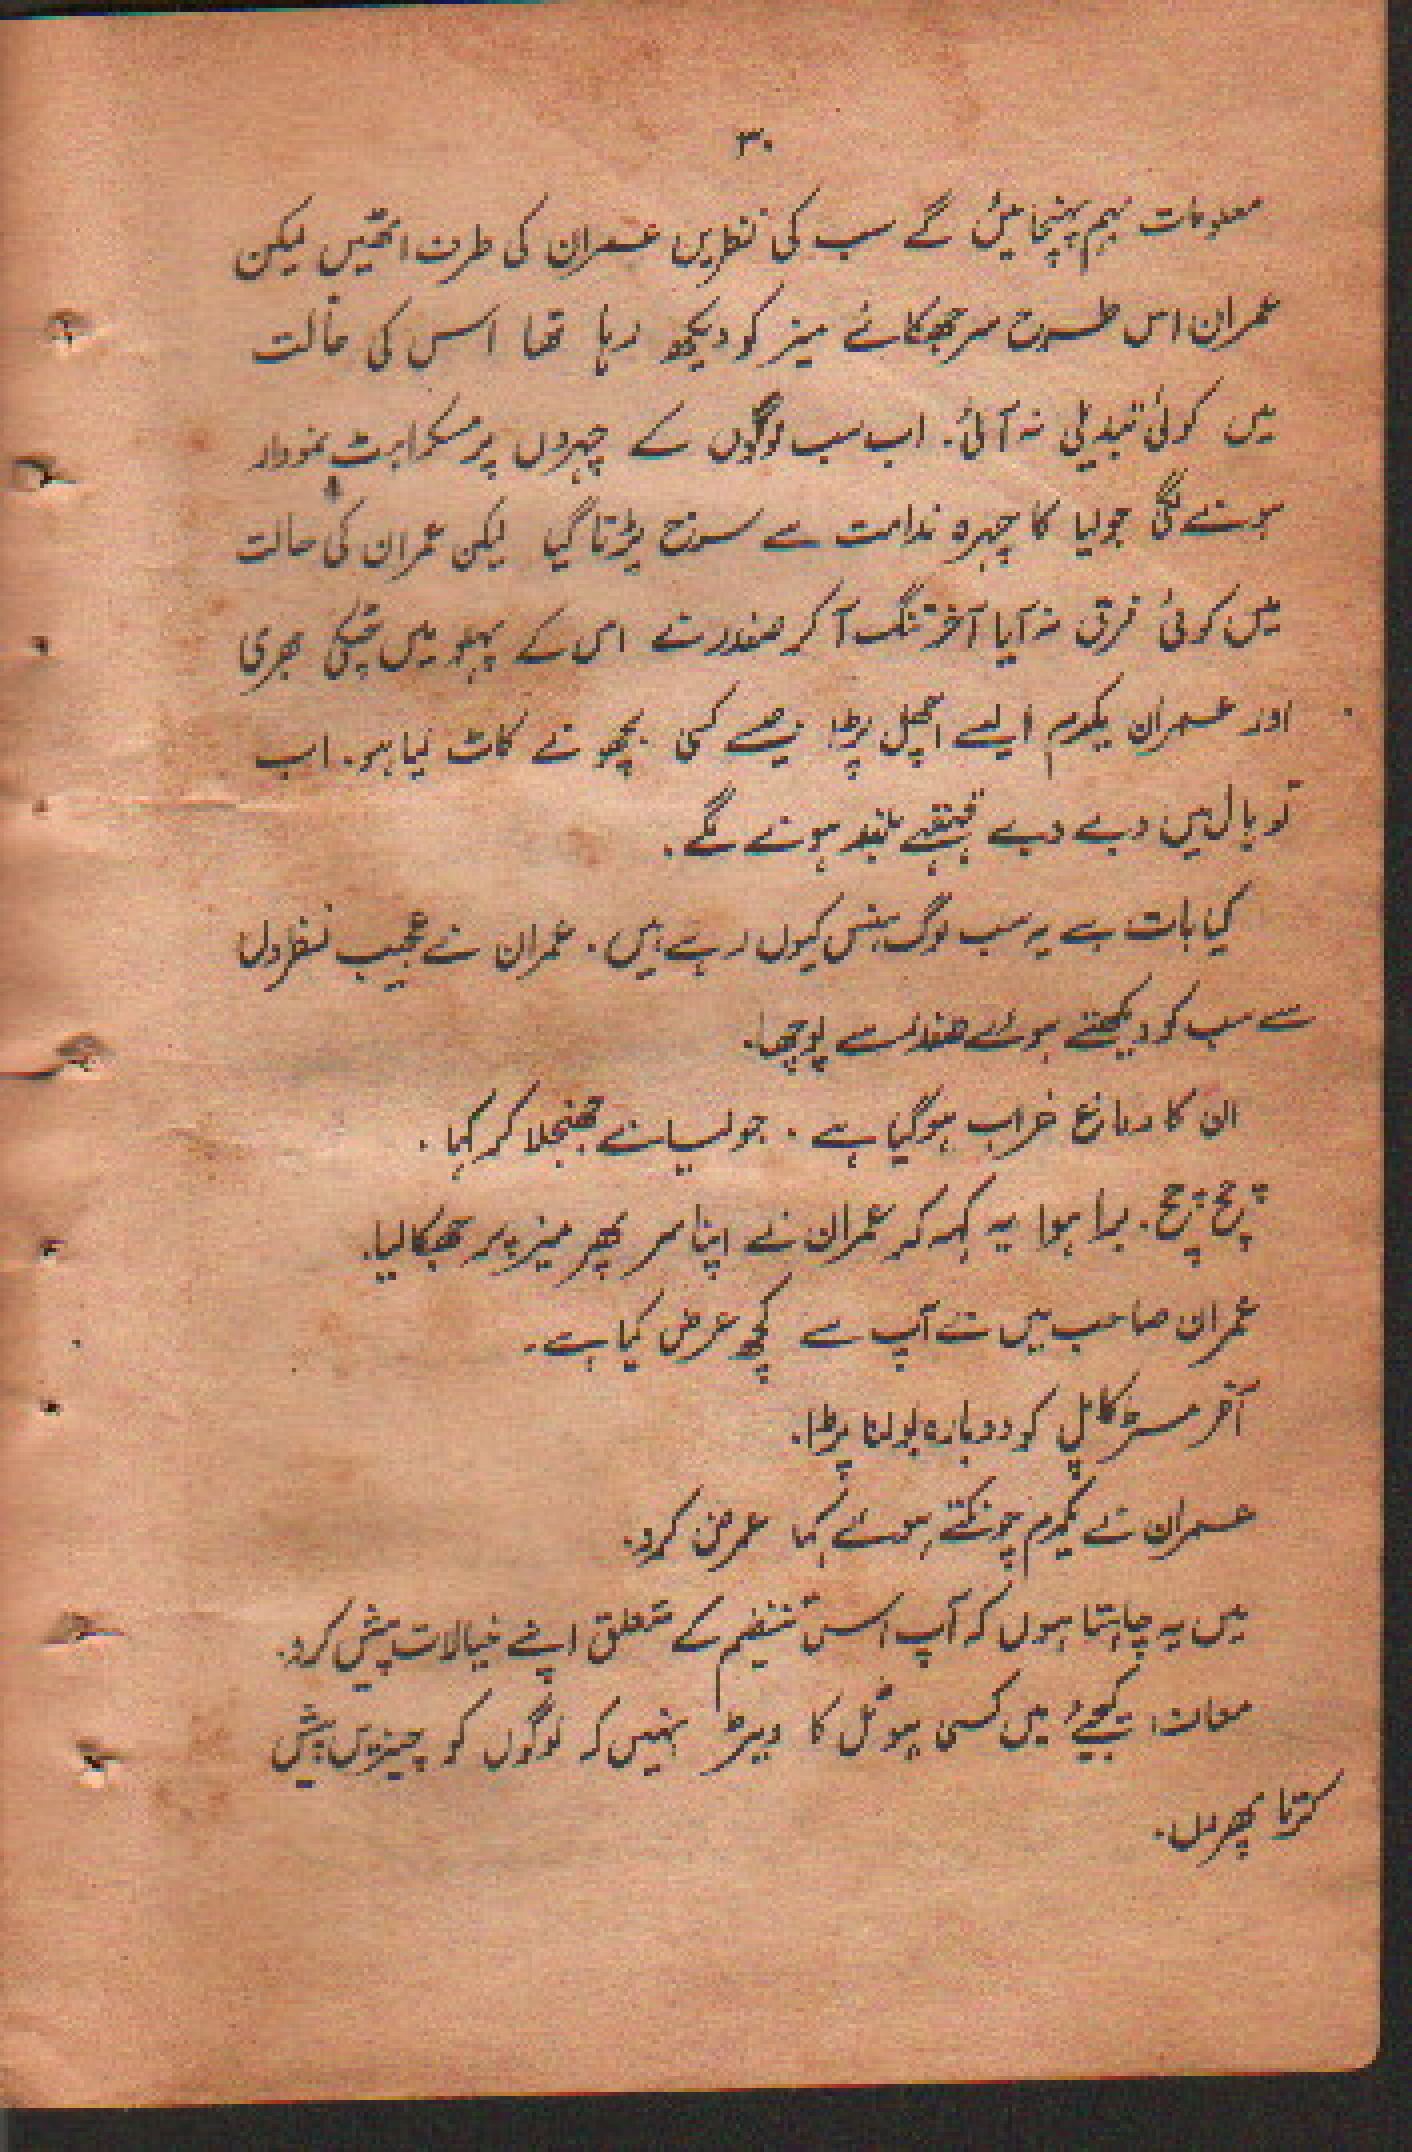 ۳۰
معلومات بہم پہنچائیں گے سب کی نظریں عمران کی طرف اٹھیں لیکن
عمران اس طرح سر جھکائے میز کو دیکھ رہا تھا اس کی حالت
میں کوئی تبدیلی نہ آئی۔ اب سب لوگوں کے چہروں پر مسکراہٹ نمودار
ہونے لگی جولیا کا چہرہ ندامت سے سرخ پڑتا گیا لیکن عمران کی حالت
میں کوئی فرق نہ آیا آخر تنگ آ کر صفدر نے اس کے پہلو میں چٹکی بھری
اور عمران یکدم ایسے اچھل پڑا جیسے کسی بچھو نے کاٹ لیا ہو۔ اب
تو ہال میں دبے دبے قہقہے بلند ہونے لگے۔
کیا بات ہے یہ سب لوگ ہنس کیوں رہے ہیں۔ عمران نے عجیب نظروں
سے سب کو دیکھتے ہوئے صفدر سے پوچھا۔
ان کا دماغ خراب ہو گیا ہے۔ جولیا نے جھنجلا کر کہا۔
چچ چچ۔ برا ہوا یہ کہہ کر عمران نے اپنا سر پھر میز پر جھکا لیا۔
عمران صاحب میں نے آپ سے کچھ عرض کیا ہے۔
آخر مسٹر کاپل کو دوبارہ بولنا پڑا۔
عمران نے یکدم چونکتے ہوئے کہا عرض کرو۔
میں یہ چاہتا ہوں کہ آپ اس تنظیم کے متعلق اپنے خیالات پیش کرو۔
معاف کیجئے میں کسی ہوٹل کا ویٹر نہیں کہ لوگوں کو چیزیں پیش
کرتا پھروں۔